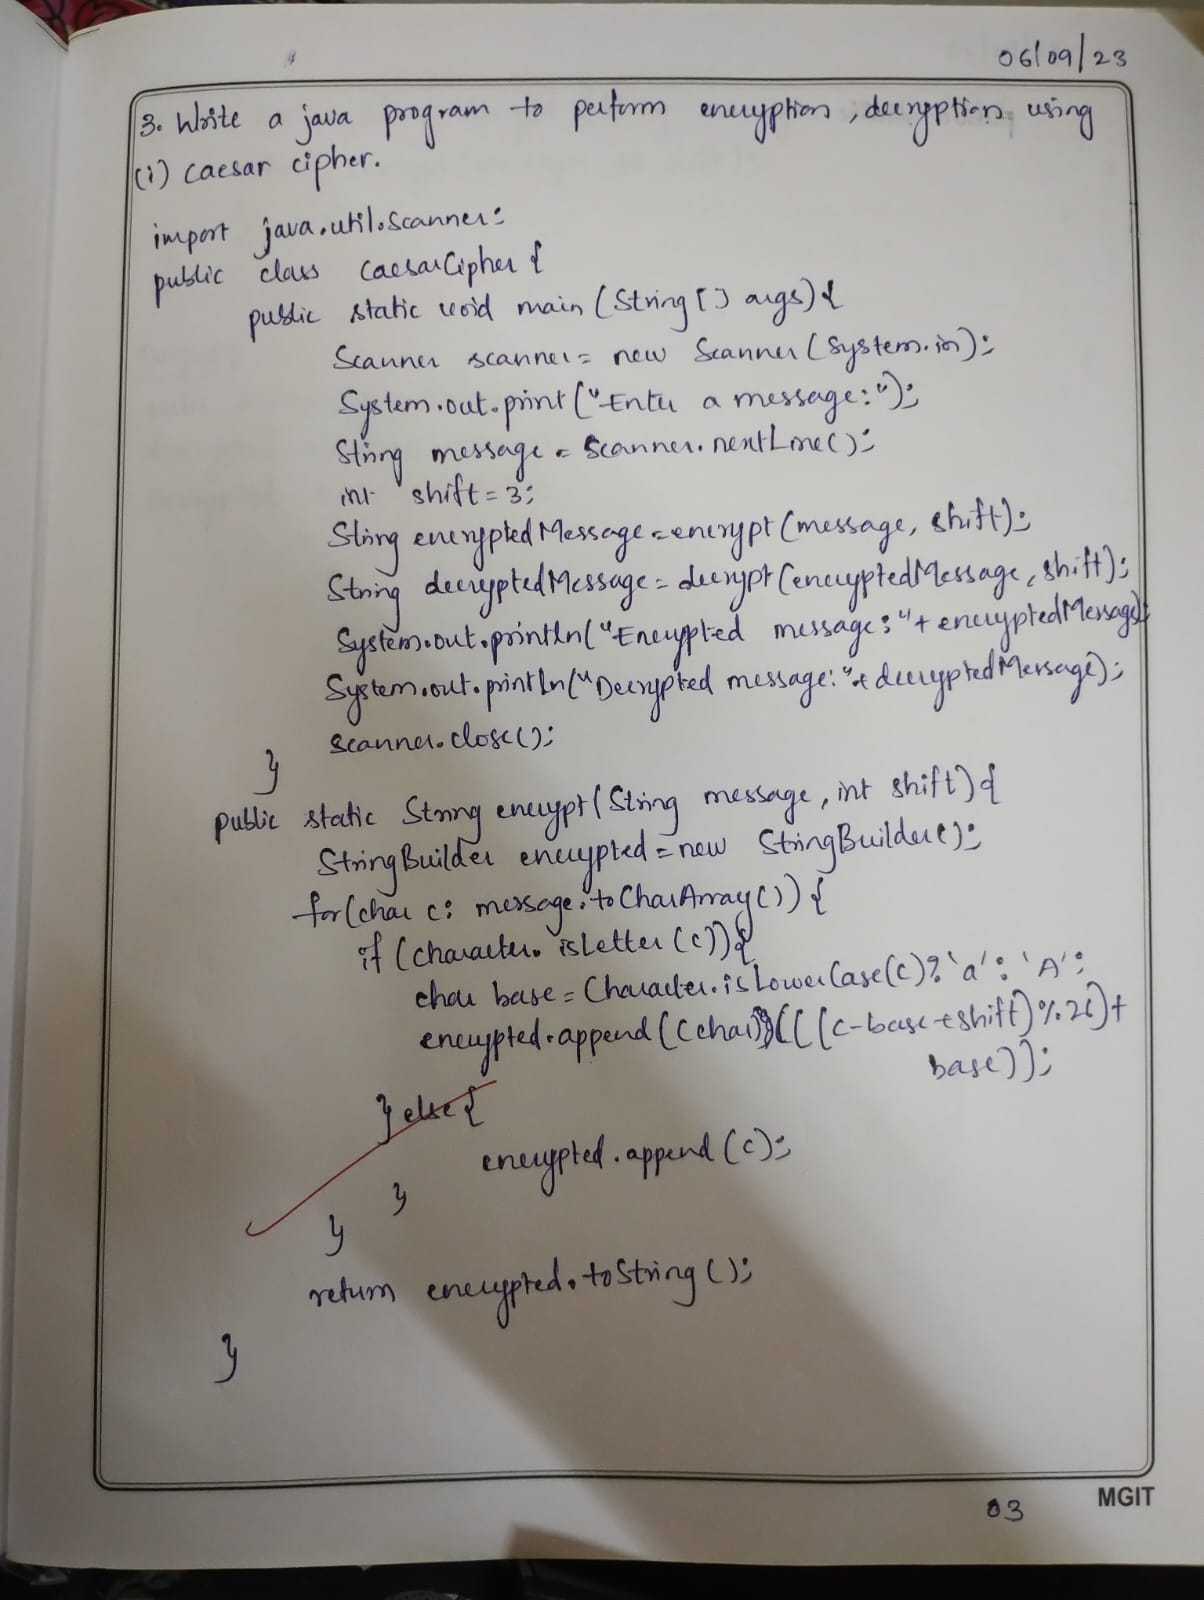 06/09/23
3. Write a java program to perform encryption, decryption using
(i) caesar cipher.
import java.util.Scanner;
public class CaesarCipher {
public static void main (String [] args) {
Scanner scanner = new Scanner (System.in);
System.out.print ("Enter a message:");
String message = Scanner.nextLine();
int shift = 3;
String encryptedMessage = encrypt (message, shift);
String decryptedMessage = decrypt (encryptedMessage, shift);
System.out.println ("Encrypted message:"+ encryptedMessage);
System.out.println ("Decrypted message:"+ decryptedMessage);
scanner.close();
}
public static String encrypt (String message, int shift) {
StringBuilder encrypted = new StringBuilder();
for (char c: message.toCharArray()) {
if (character.isLetter (c)) {
char base = Character.isLowerCase(c)? 'a' : 'A';
encrypted.append ((char)(((c-base+shift)%26)+
base));
} else {
encrypted.append (c);
}
}
return encrypted.toString ();
}
03
MGIT